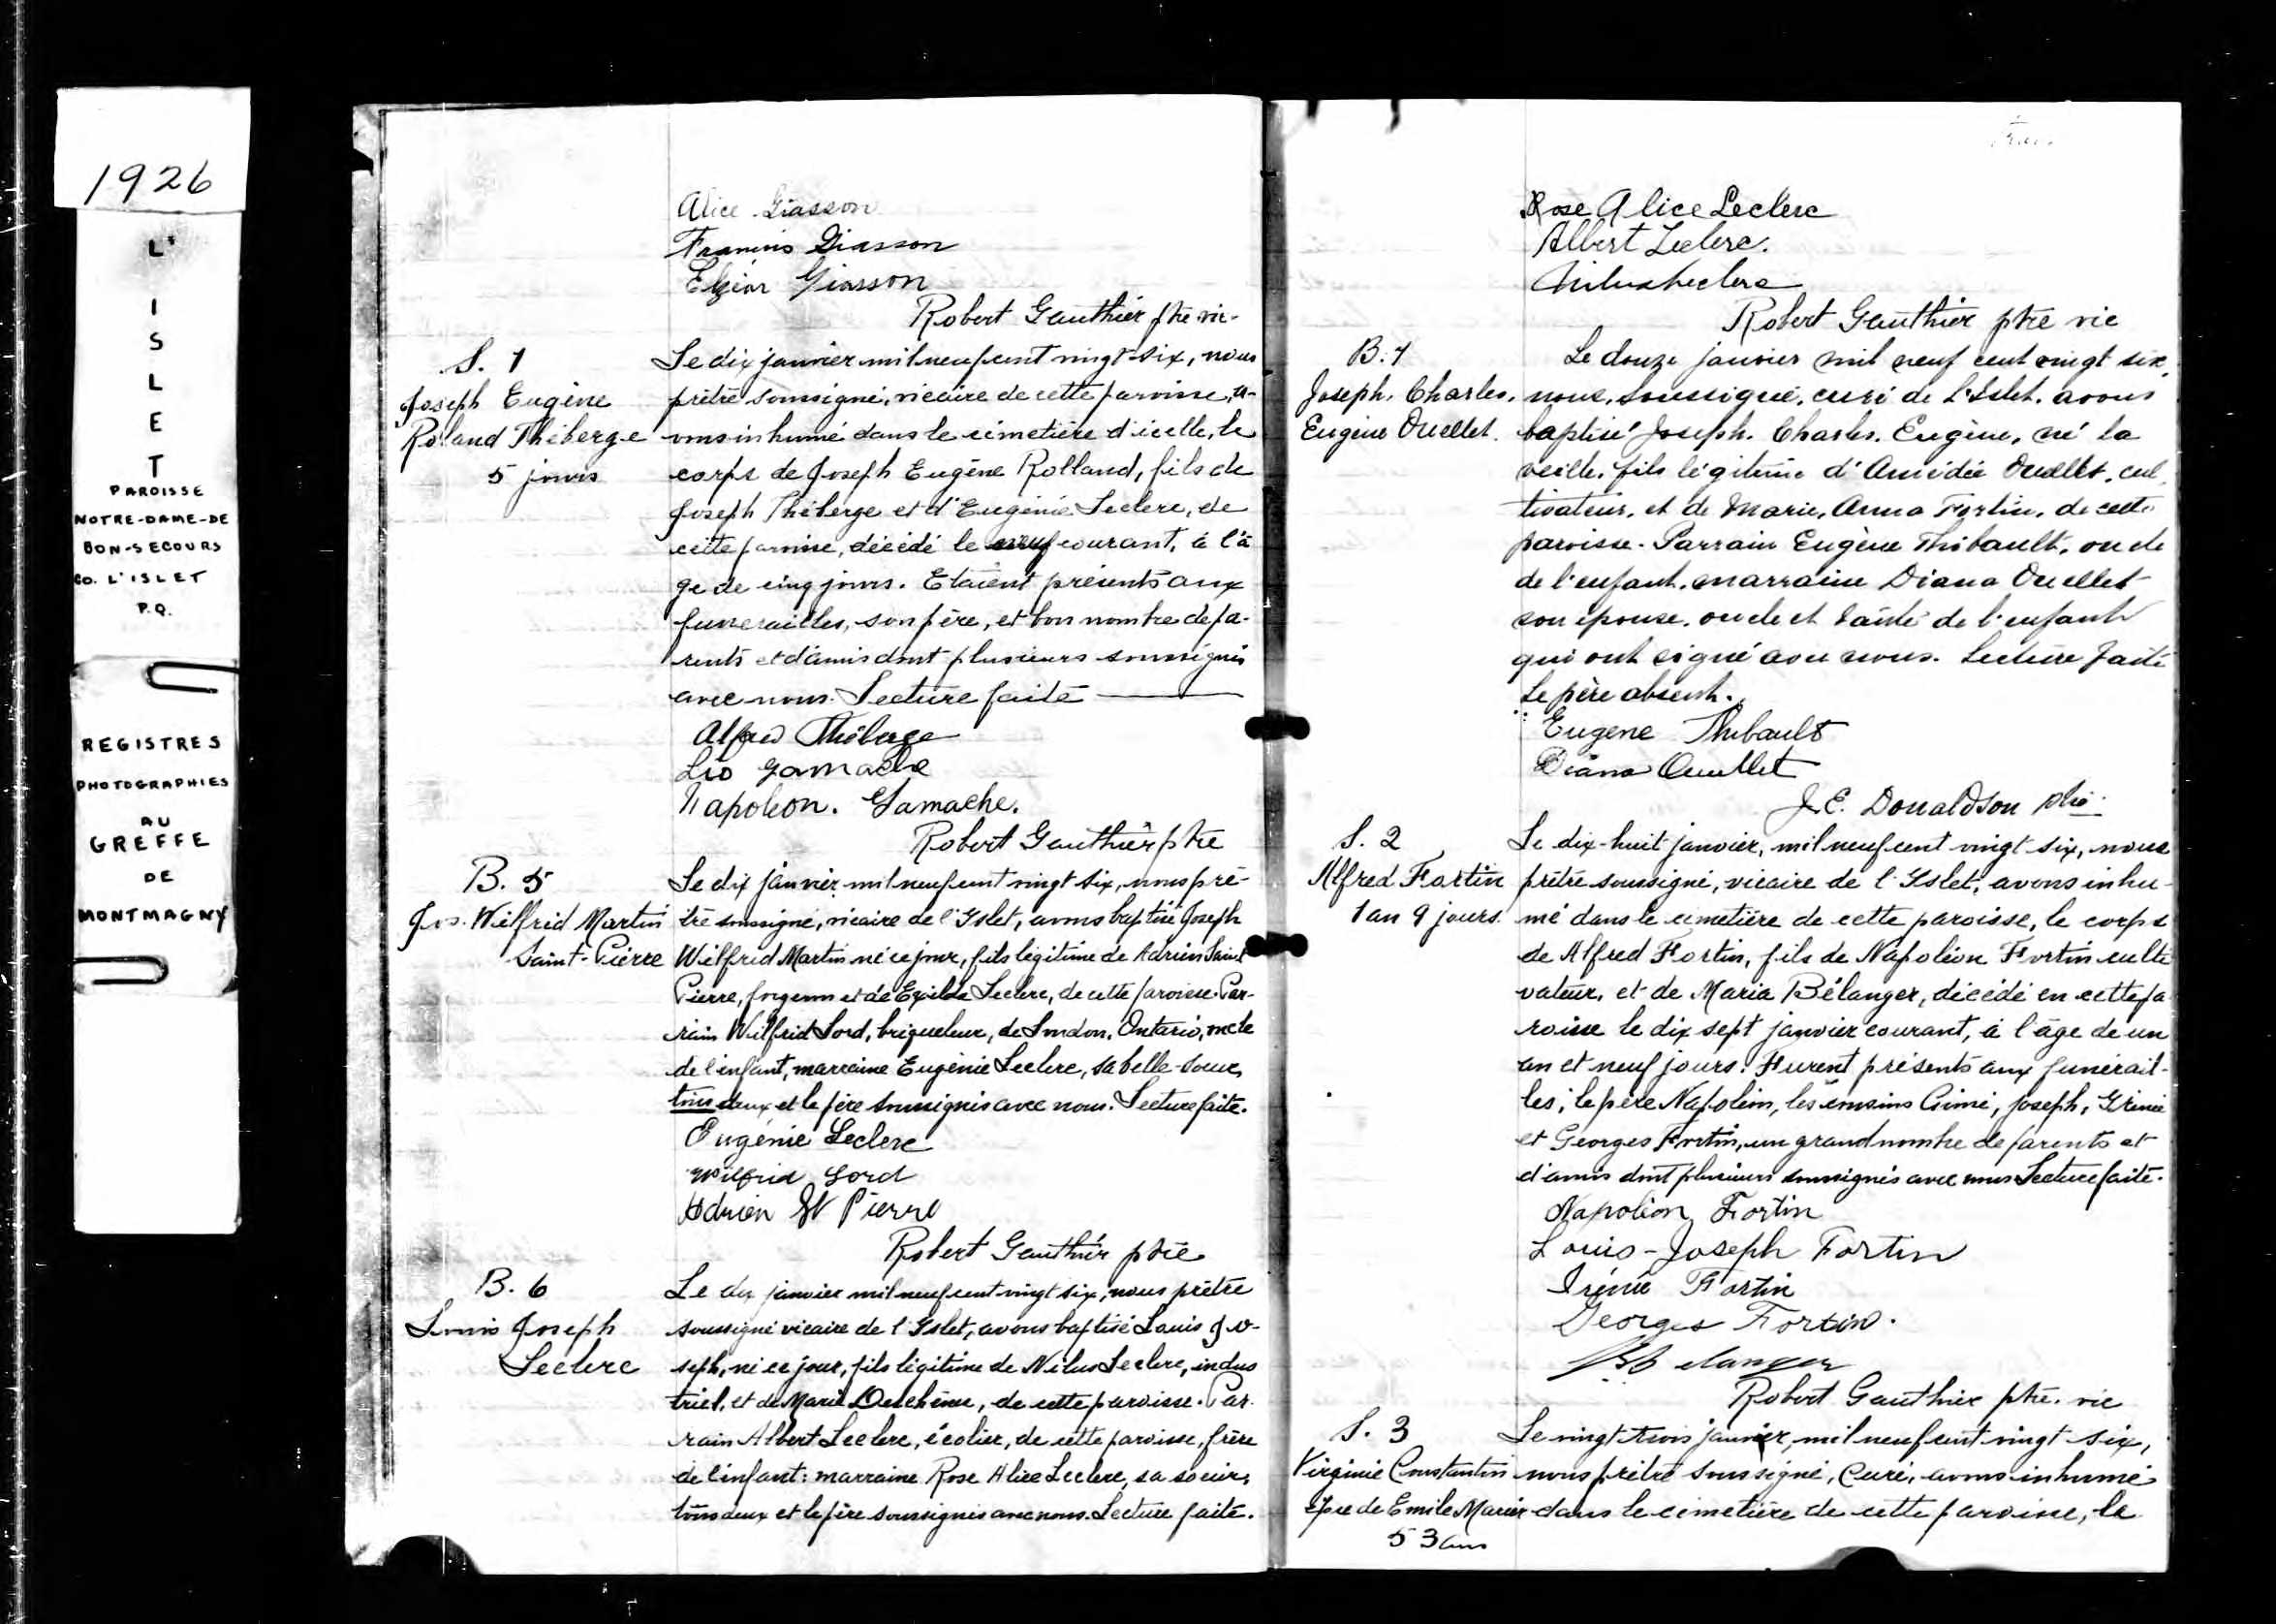 1926
L'
I
S
L
E
T
PAROISSE
NOTRE-DAME-DE
BON-SECOURS
CO. L'ISLET
P.Q.
REGISTRES
PHOTOGRAPHIES
AU
GREFFE
DE
MONTMAGNY
Alice Giasson
Francois Giasson
Elzéar Giasson
Robert Gauthier ptre vic-
S. 1
Joseph Eugène
Roland Théberge
5 jours
Le dix janvier mil neuf cent vingt-six, nous
prêtre soussigné, vicaire de cette paroisse, a-
vons inhumé dans le cimetière d'icelle, le
corps de Joseph Eugène Rolland, fils de
Joseph Théberge et d'Eugénie Leclerc, de
cette paroisse, décédé le neuf courant, à l'â
ge de cinq jours. Etaient présents aux
funerailles, son père, et bon nombre de pa-
rents et d'amis dont plusieurs soussignés
avec nous. Lecture faite
Alfred Théberge
Léo Gamache
Napoléon. Gamache.
Robert Gauthier ptre
B. 5
Jos. Wilfrid Martin
Saint-Pierre
Le dix janvier mil neuf cent vingt six, nous prê-
tre soussigné, vicaire de l'Islet, avons baptisé Joseph
Wilfrid Martin né ce jour, fils légitime de Adrien Saint
Pierre, forgeron et de Exilda Leclerc, de cette paroisse. Par-
rain Wilfrid Lord, briqueleur, de London, Ontario, oncle
de l'enfant, marraine Eugénie Leclerc, sa belle-soeur,
tous deux et le père soussignés avec nous. Lecture faite.
Eugénie Leclerc
Wilfrid Lord
Adrien St Pierre
Robert Gauthier ptre
B. 6
Louis Joseph
Leclerc
Le dix janvier mil neuf cent vingt six, nous prêtre
soussigné vicaire de l'Islet, avons baptisé Louis Jo-
seph, né ce jour, fils légitime de Nilus Leclerc, indus
triel, et de Marie Deschênes, de cette paroisse. Par.
rain Albert Leclerc, écolier, de cette paroisse, frère
de l'enfant: marraine Rose Alice Leclerc, sa soeur,
tous deux et le père soussignés avec nous. Lecture faite.
Rose Alice Leclerc
Albert Leclerc.
Nilus Leclerc
Robert Gauthier ptre vic
B. 7
Joseph. Charles.
Eugène Ouellet.
Le douze janvier mil neuf cent vingt six,
nous, soussigné, curé de L'Islet. avons
baptisé Joseph. Charles. Eugène, né la
veille, fils légitime d'Amédée Ouellet, cul
tivateur, et de Marie, Anna Fortin, de cette
paroisse. Parrain Eugène Thibault, oncle
de l'enfant. marraine Diana Ouellet
son épouse. oncle et tante de l'enfant
qui ont signé avec nous. Lecture faite
Le père absent.
Eugene Thibault
Diana Ouellet
J.E. Donaldson ptre
S. 2
Alfred Fortin
1 an 9 jours.
Le dix-huit janvier, mil neuf cent vingt six, nous
prêtre soussigné, vicaire de l'Islet, avons inhu-
mé dans le cimetière de cette paroisse, le corps
de Alfred Fortin, fils de Napoléon Fortin culti
vateur, et de Maria Bélanger, décédé en cette pa
roisse le dix sept janvier courant, à l'âge de un
an et neuf jours. Furent présents aux funérail-
les, le père Napoléon, les cousins Aimé, Joseph, Irénée
et Georges Fortin, un grand nombre de parents et
d'amis dont plusieurs soussignés avec nous Lecture faite.
Napoléon Fortin
Louis-Joseph Fortin
Irénée Fortin
Georges Fortin.
Belanger
Robert Gauthier ptre. vic
S. 3
Virginie Constantin
épse de Emile Mercier
53 ans
Le vingt trois janvier, mil neuf cent vingt six,
nous prêtre soussigné, Curé, avons inhumé
dans le cimetière de cette paroisse, le